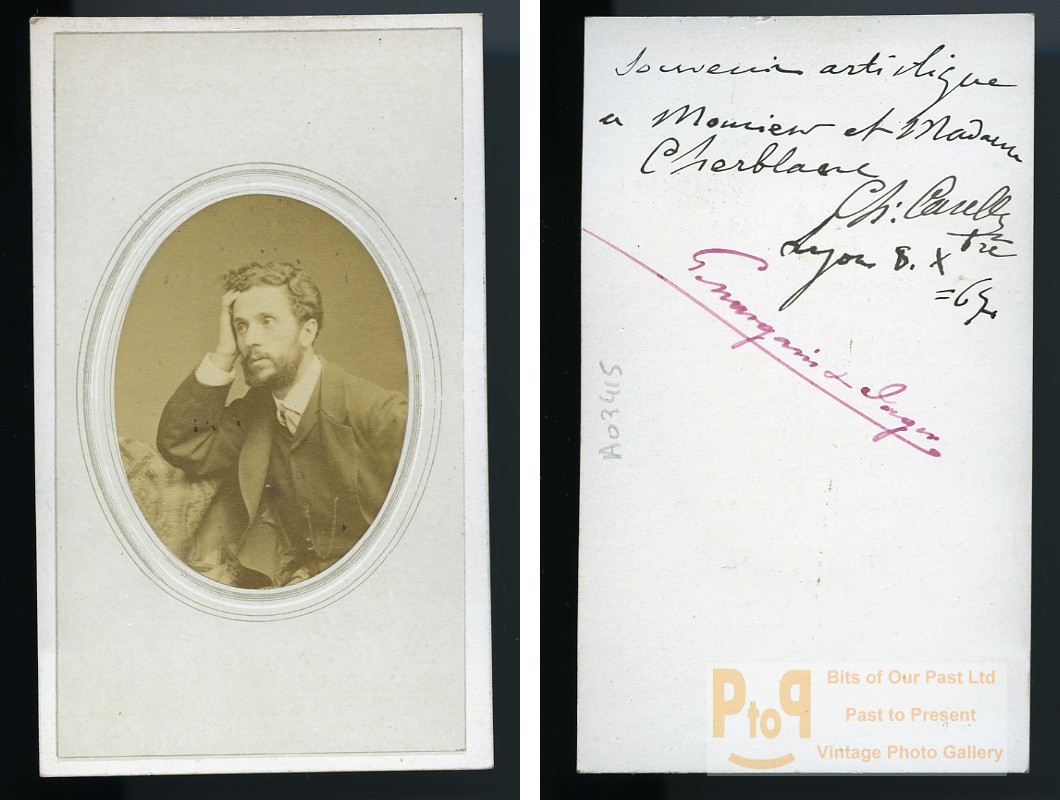 Souvenir artistique
a Monsieur et Madame
Cherblanc
Ch:
Lyon 8. Xbre
=67.
A03415
PtoP
Bits of Our Past Ltd
Past to Present
Vintage Photo Gallery